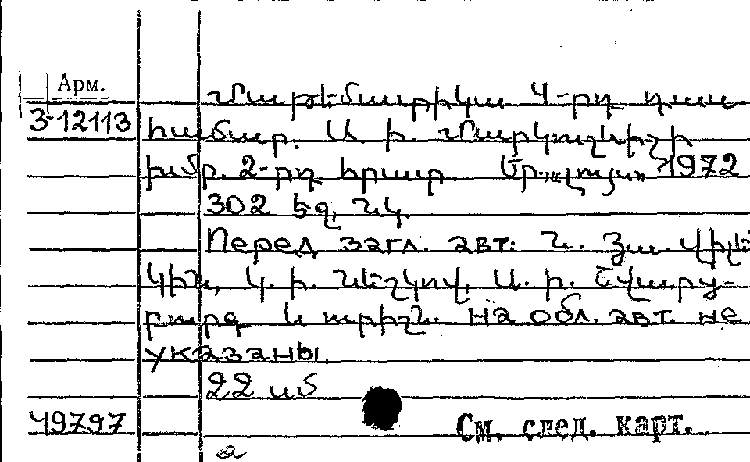 Арм.
Մաթեմատիկա 4-րդ դաս
3-12113
համար. Ա. Ի. Մարկուշևիչի
խմբ. 2-րդ հրատ. Եր., «Լույս» 1972
302 եջ, նկ.
Перед загл. авт: Ն. Յա. Վիլեն
կին, Կ. Ի. Նեշկով, Ս. Ի. Շվարց-
բուրդ և ուրիշն. На обл. авт. не
указаны.
22 սմ
49797
См. след. карт.
а